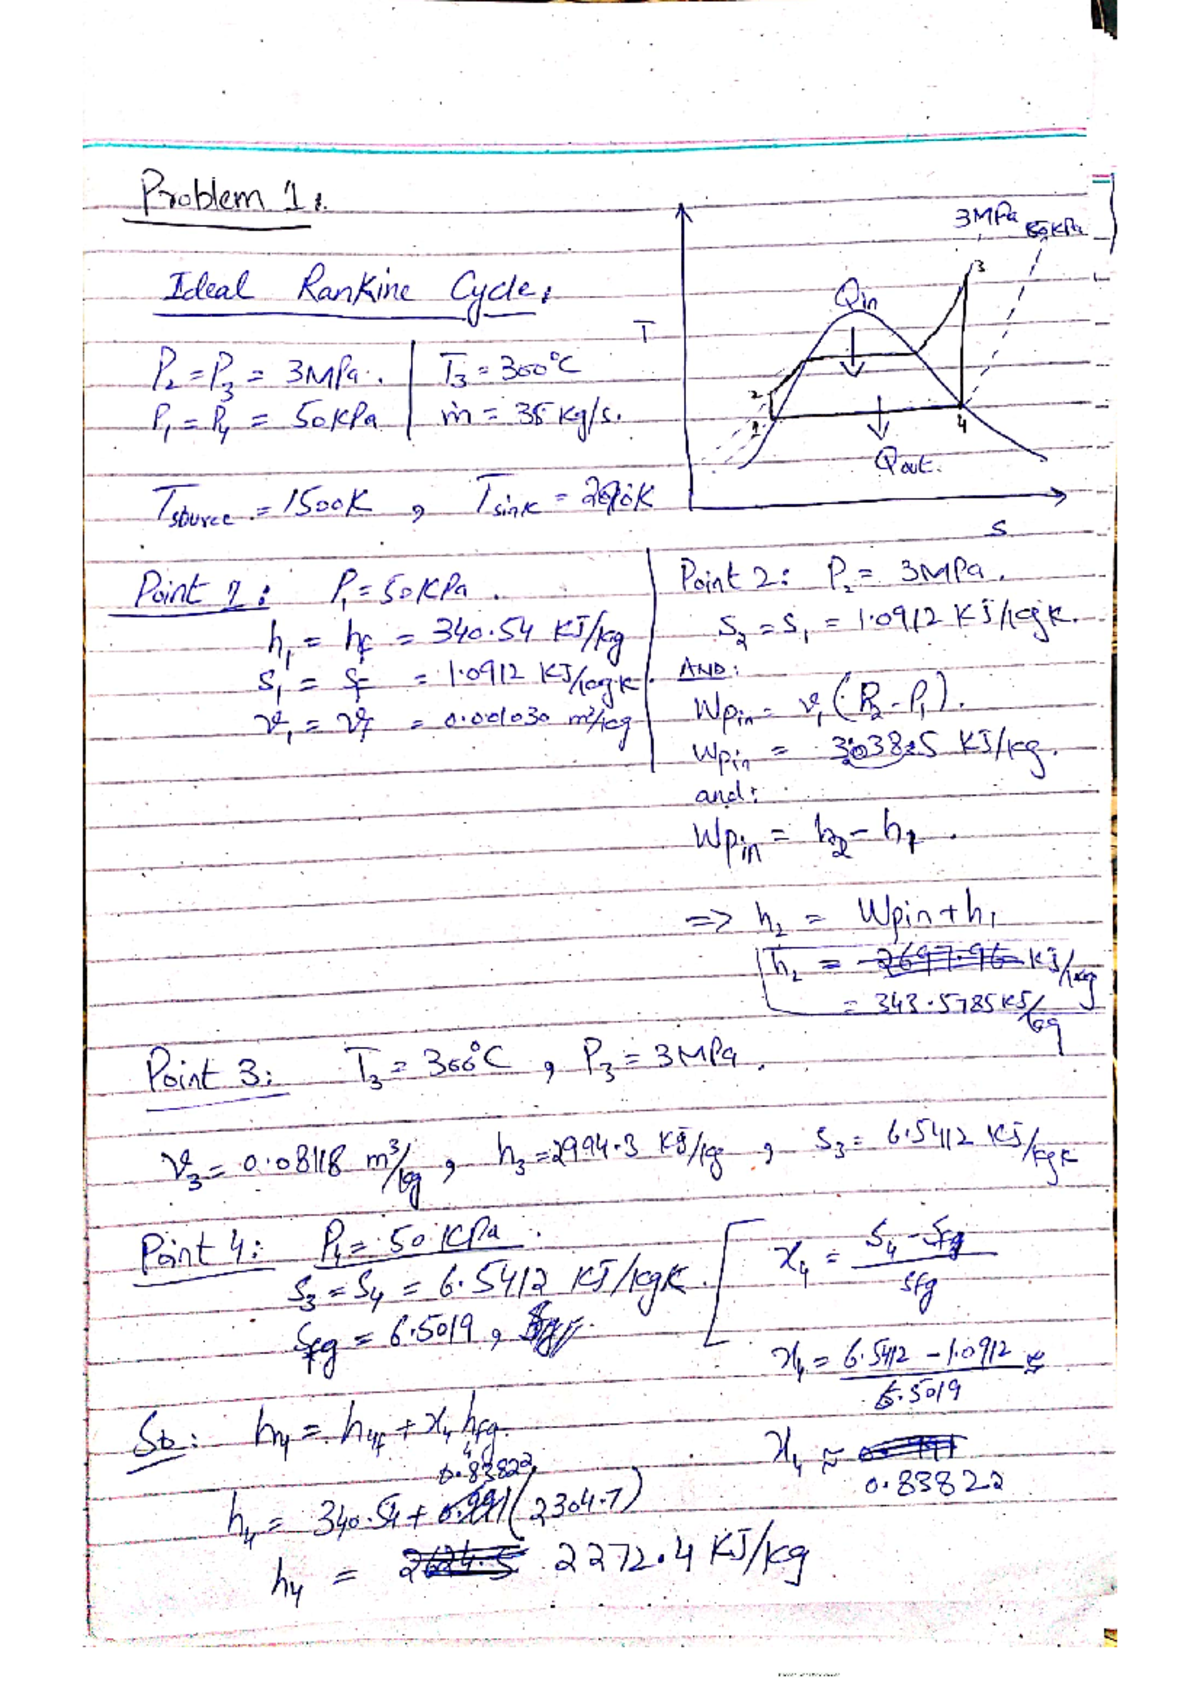 Problem 1:
3MPa 50KPa
Ideal Rankine Cycle:
3
Qin
T
P2 = P3 = 3MPa. T3 = 300°C
P1 = P4 = 50KPa ṁ = 35 Kg/s.
2
1
4
Qout.
Tsource = 1500K , Tsink = 290K
S
Point 1: P1 = 50KPa .
h1 = hf = 340.54 KJ/kg
S1 = Sf = 1.0912 KJ/kgK.
v1 = vf = 0.001030 m³/kg
Point 2: P2 = 3MPa.
S2 = S1 = 1.0912 KJ/kgK.
AND:
Wpin = v1 (P2 - P1).
Wpin = 3.0385 KJ/kg.
and:
Wpin = h2 - h1 .
=> h2 = Wpin + h1
h2 = 2697.96 KJ/kg
= 343.5785 KJ/kg
Point 3: T3 = 300°C , P3 = 3MPa.
v3 = 0.08118 m³/kg , h3 = 2994.3 KJ/kg , S3 = 6.5412 KJ/kgK
Point 4: P4 = 50KPa .
S3 = S4 = 6.5412 KJ/kgK.
Sfg = 6.5019 ,
x4 = S4 - Sfg / Sfg
x4 = 6.5412 - 1.0912 / 6.5019
x4 ≈
0.83822
So: h4 = h4f + x4 hfg4.
0.83822
h4 = 340.54 + 0.991 (2304.7)
h4 = 2624.5 2272.4 KJ/kg